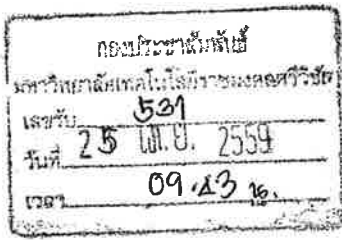 กองประชาสัมพันธ์
มหาวิทยาลัยเทคโนโลยีราชมงคลศรีวิชัย
เลขรับ 531
วันที่ 25 เม.ย. 2559
เวลา 09.43 น.